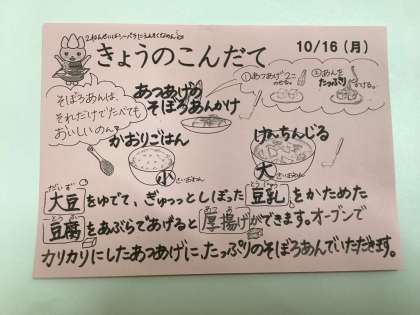 2ねんせいは
きょうのこんだて 10/16(月)
あつあげの
そぼろあんかけ
①あつあげ2こ
②あんを
たっぷり
かける。
そぼろあんは、
それだけでたべても
おいしいのん♪
かおりごはん
けんちんじる
小
大
だいず とうにゅう
大豆をゆでて、ぎゅっっとしぼった豆乳をかためた
とうふ あつあ
豆腐をあぶらであげると厚揚げができます。オーブンで
カリカリにしたあつあげに、たっぷりのそぼろあんでいただきます。